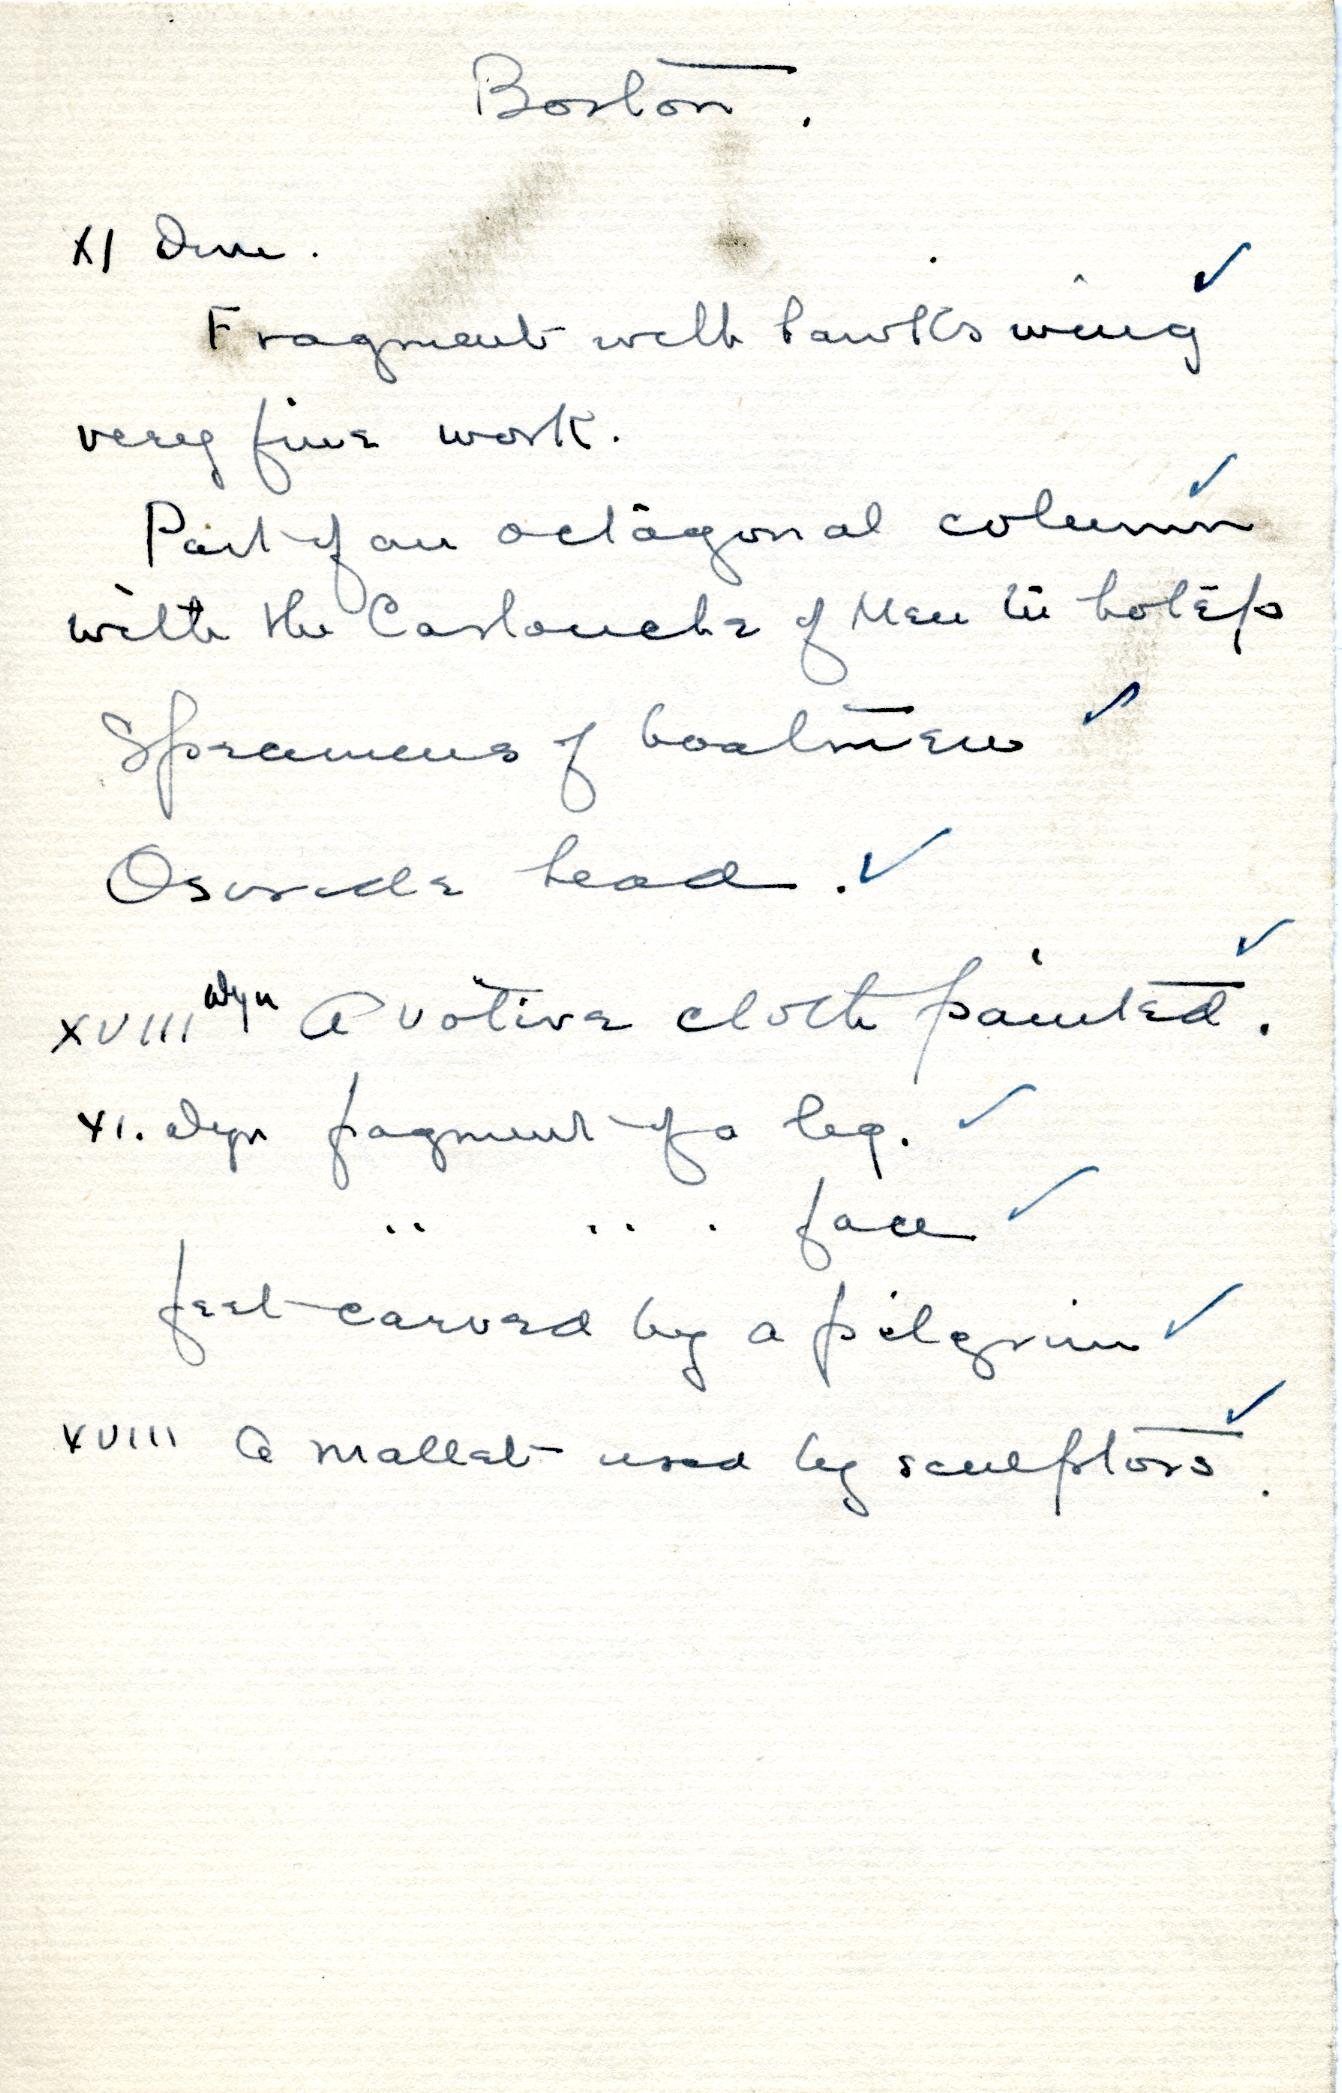 Boston.
XI
Fragment with hawks wing ✓
very fine work.
Part of an octagonal column ✓
with the Cartouche of Men tu hotep
Specimens of boatmen ✓
Osiride head. ✓
XVIII dyn A votive cloth painted. ✓
XI. dyn fragment of a leg. ✓
" " . face ✓
feet carved by a pilgrim ✓
XVIII A mallet used by sculptors. ✓